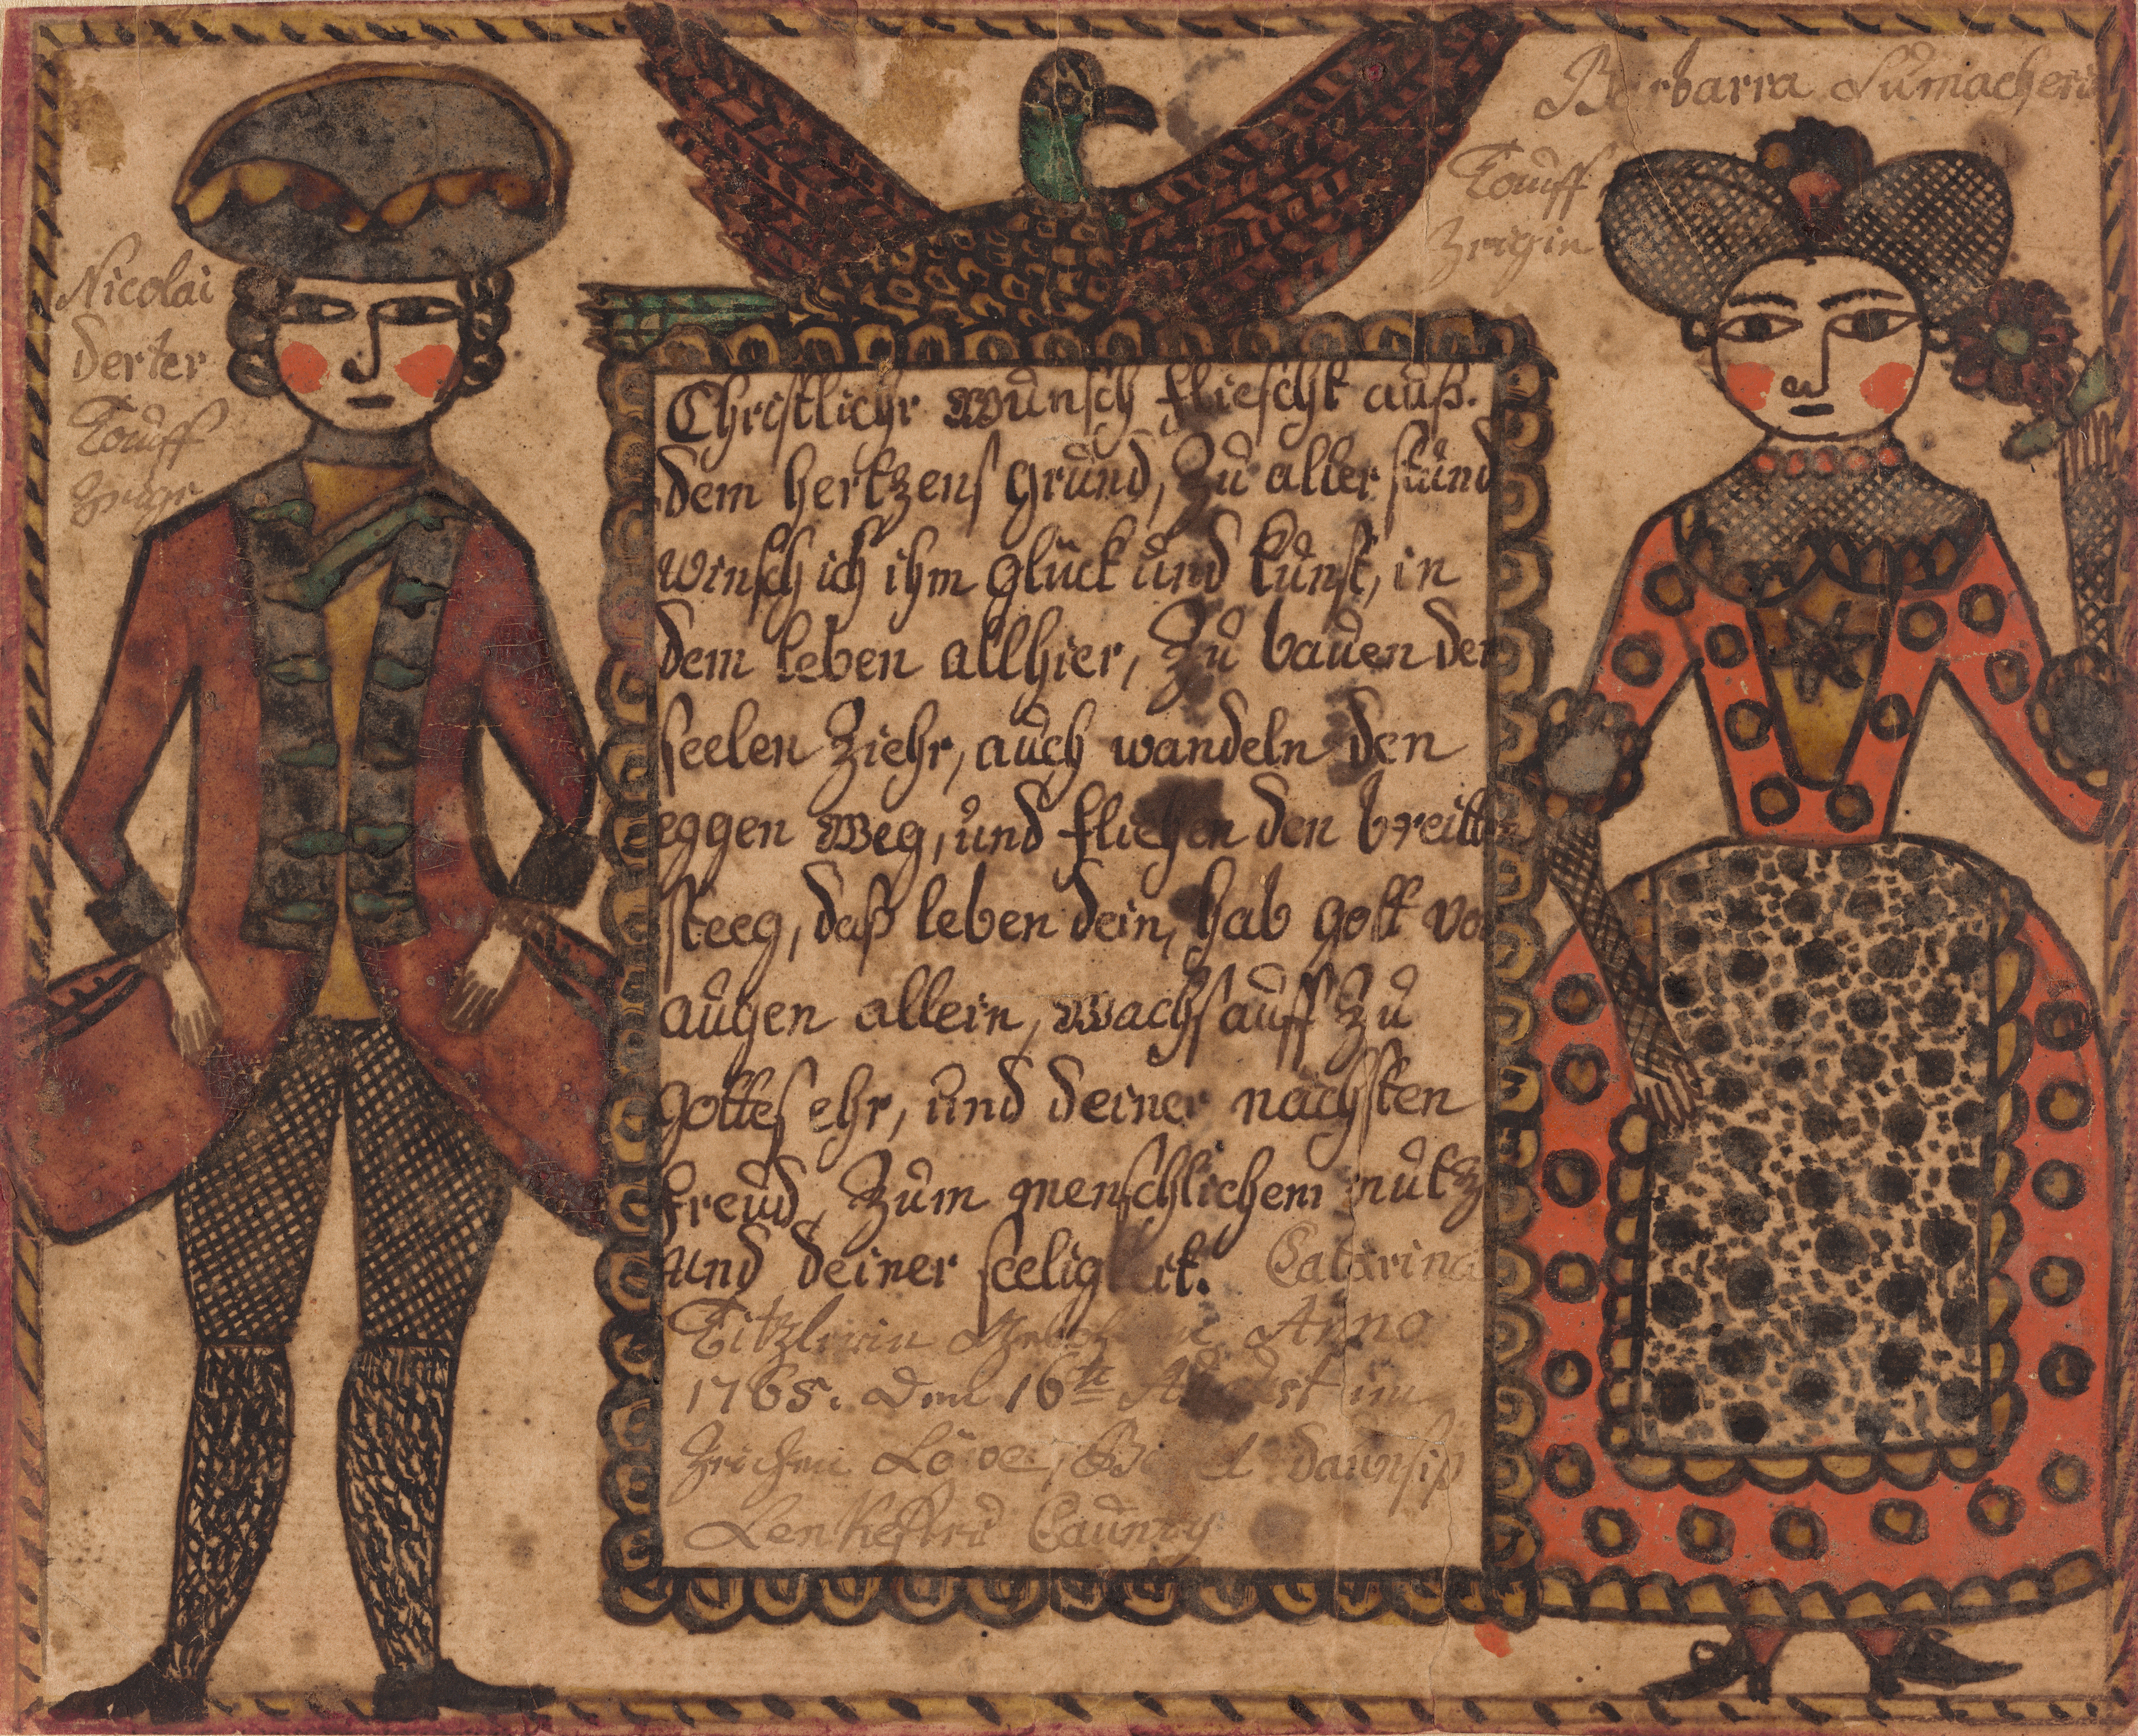 Nicolai
Derter
Tauff
Barbarra Sumacherin
Tauff
Zeigin
Christlichr Wunsch fliescht auß.
dem hertzens grund, Zu aller stund
winsch ich ihm glück und kunst, in
dem leben allhier, Zu bauen der
seelen Ziehr, auch wandeln den
eggen Weg, und fliehen den breitten
steeg, daß leben dein, hab gott vor
augen allein, Wachs auff Zu
gottes ehr, und deiner nächsten
freud, Zum menschlichem nutz
und deiner seeligkeit. Catarina
Anno
1765. Den 16te August im
Zeichen Löwe,
Caunty